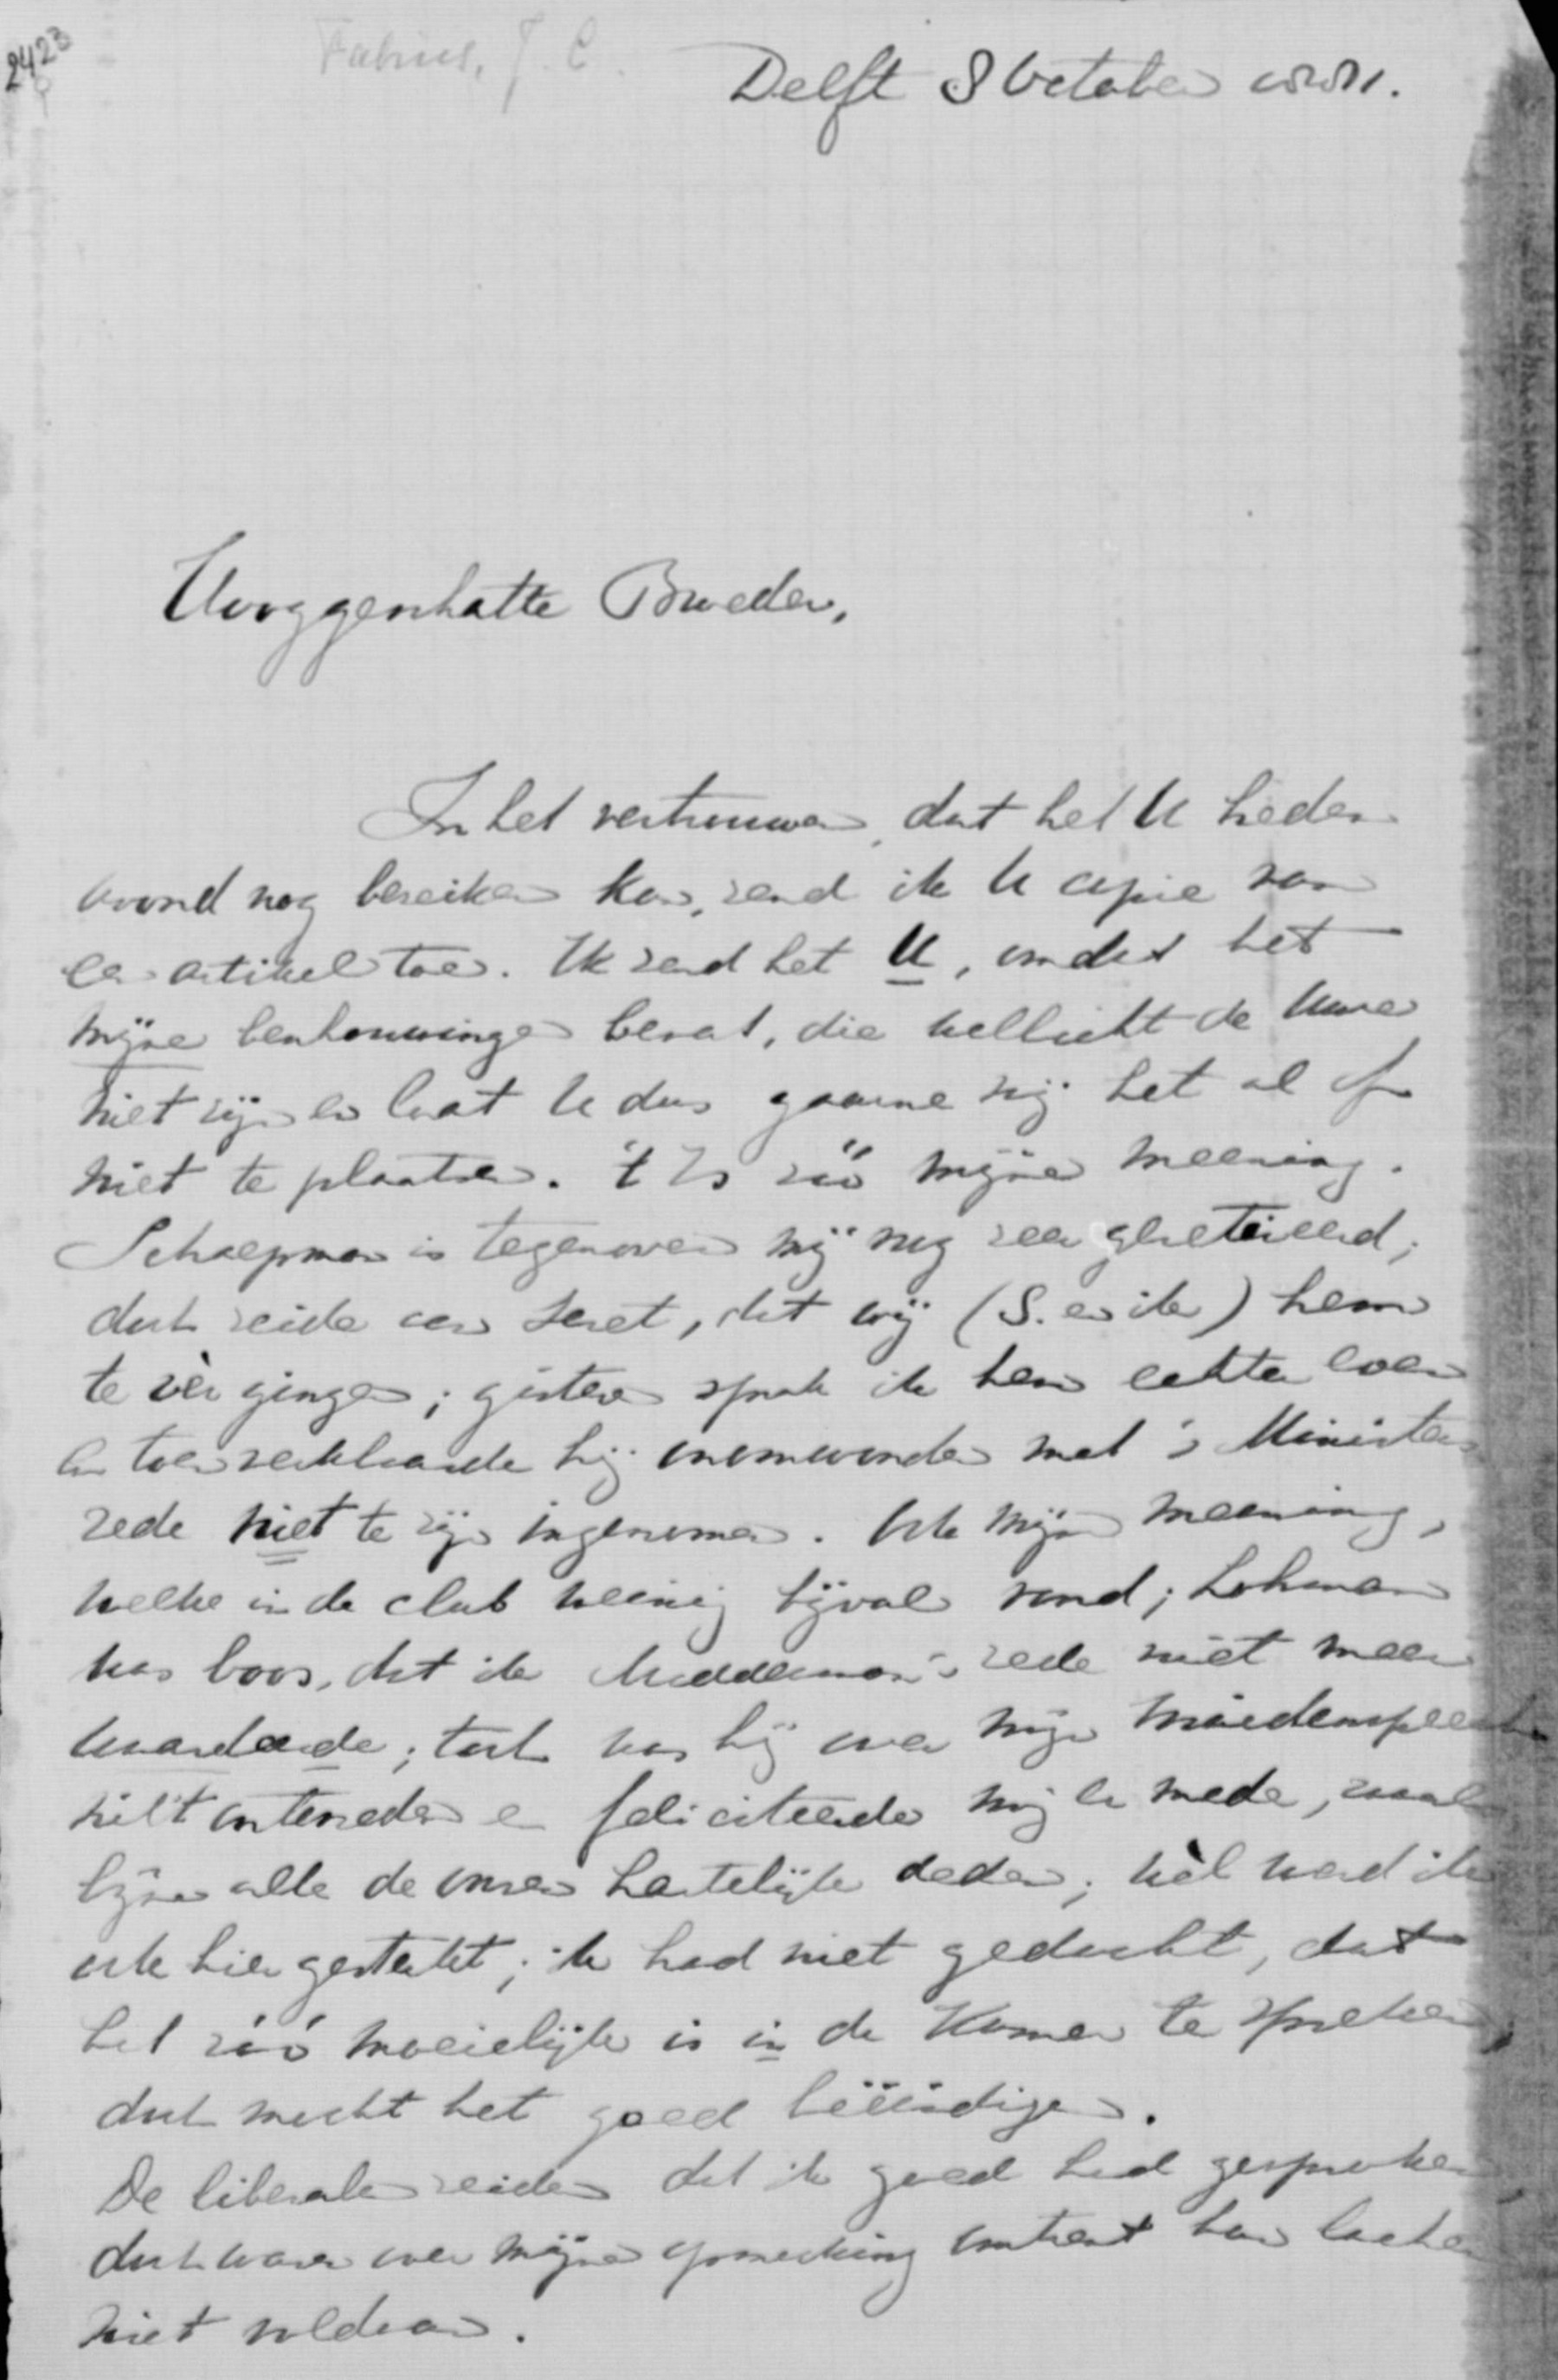 2423
Fabius, J. C.
Delft 8 October 1881.
Hooggeschatte Broeder,
In het vertrouwen, dat het U heden
avond nog bereiken kan, zend ik U copie van
een artikel toe. Ik zend het U, omdat het
mijne beschouwingen bevat, die wellicht de Uwe
niet zijn en laat U dus gaarne vrij het al of
niet te plaatsen. 't Is zóó mijne meening.
Schaepman is tegenover mij nog zeer geretireerd;
doch zeide aan Seret, dat wij (S. en ik) hem
te vèr gingen; gisteren sprak ik hem echter even
en toen verklaarde hij onomwonden met 's Ministers
rede niet te zijn ingenomen. Ook mijn meening,
welke in de club weinig bijval vond; Lohman
was boos, dat ik Modderman's rede niet meer
waardeerde; toch was hij over mijn maidenspeech
niet ontevreden en feliciteerde mij er mede, zooals
bijna alle de onzen hartelijk deden; wèl werd ik
ook hier gesterkt; ik had niet gedacht, dat
het zóó moeielijk is in de Kamer te spreken,
doch mocht het goed beëindigen.
De liberalen zeiden dat ik goed had gesproken
doch waren over mijne opmerking omtrent hun lachen
niet voldaan.